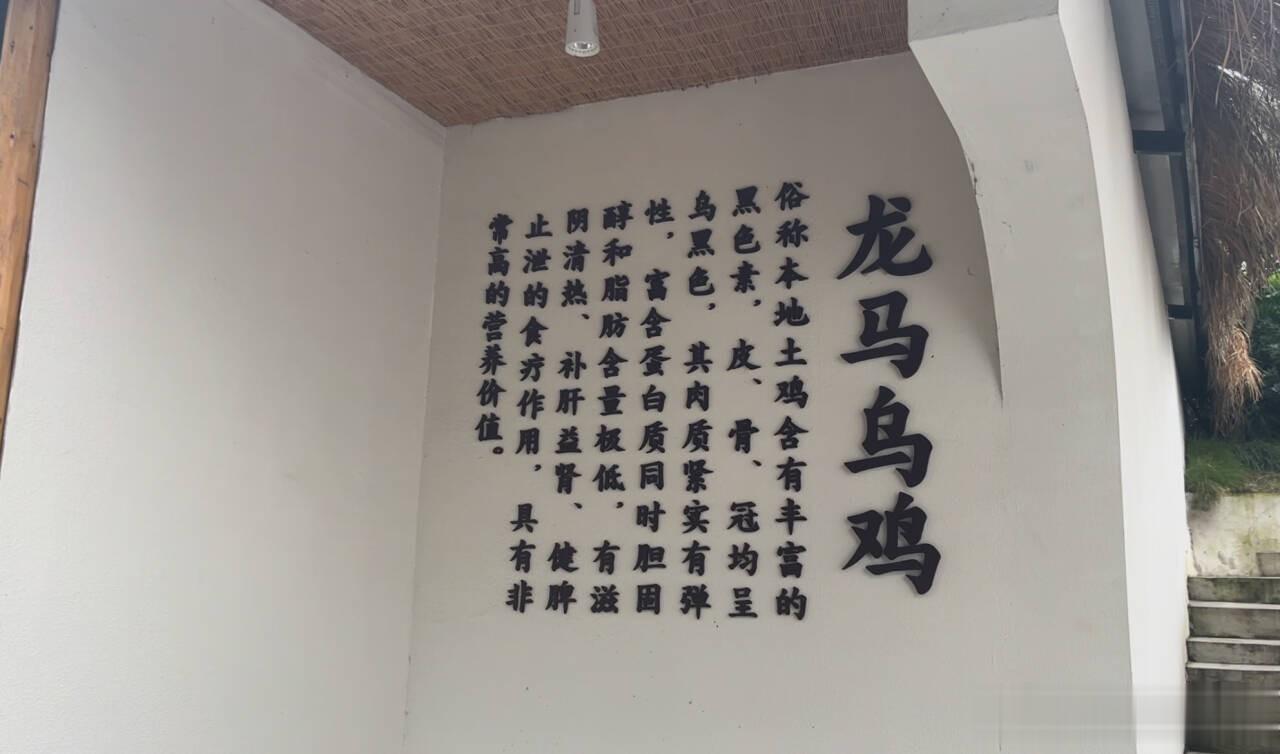 龙马乌鸡
俗称本地土鸡含有丰富的
黑色素，皮、骨、冠均呈
乌黑色，其肉质紧实有弹
性，富含蛋白质同时胆固
醇和脂肪含量极低，有滋
阴清热、补肝益肾、健脾
止泄的食疗作用，具有非
常高的营养价值。